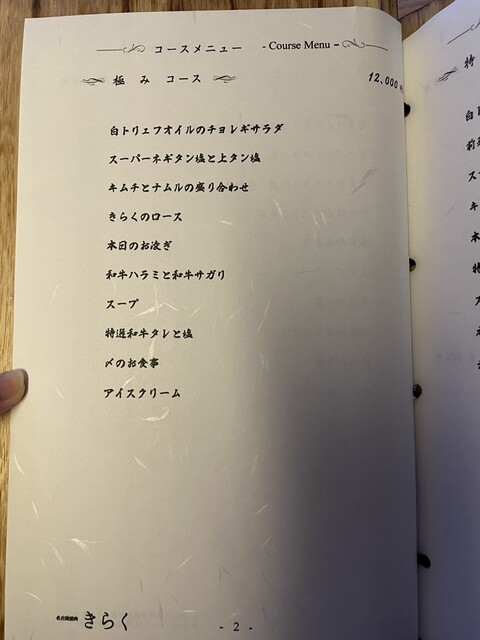 コースメニュー - Course Menu -
極み コース 12,000
白トリュフオイルのチョレギサラダ
スーパーネギタン塩と上タン塩
キムチとナムルの盛り合わせ
きらくのロース
本日のお凌ぎ
和牛ハラミと和牛サガリ
スープ
特選和牛タレと塩
〆のお食事
アイスクリーム
きらく
- 2 -
特